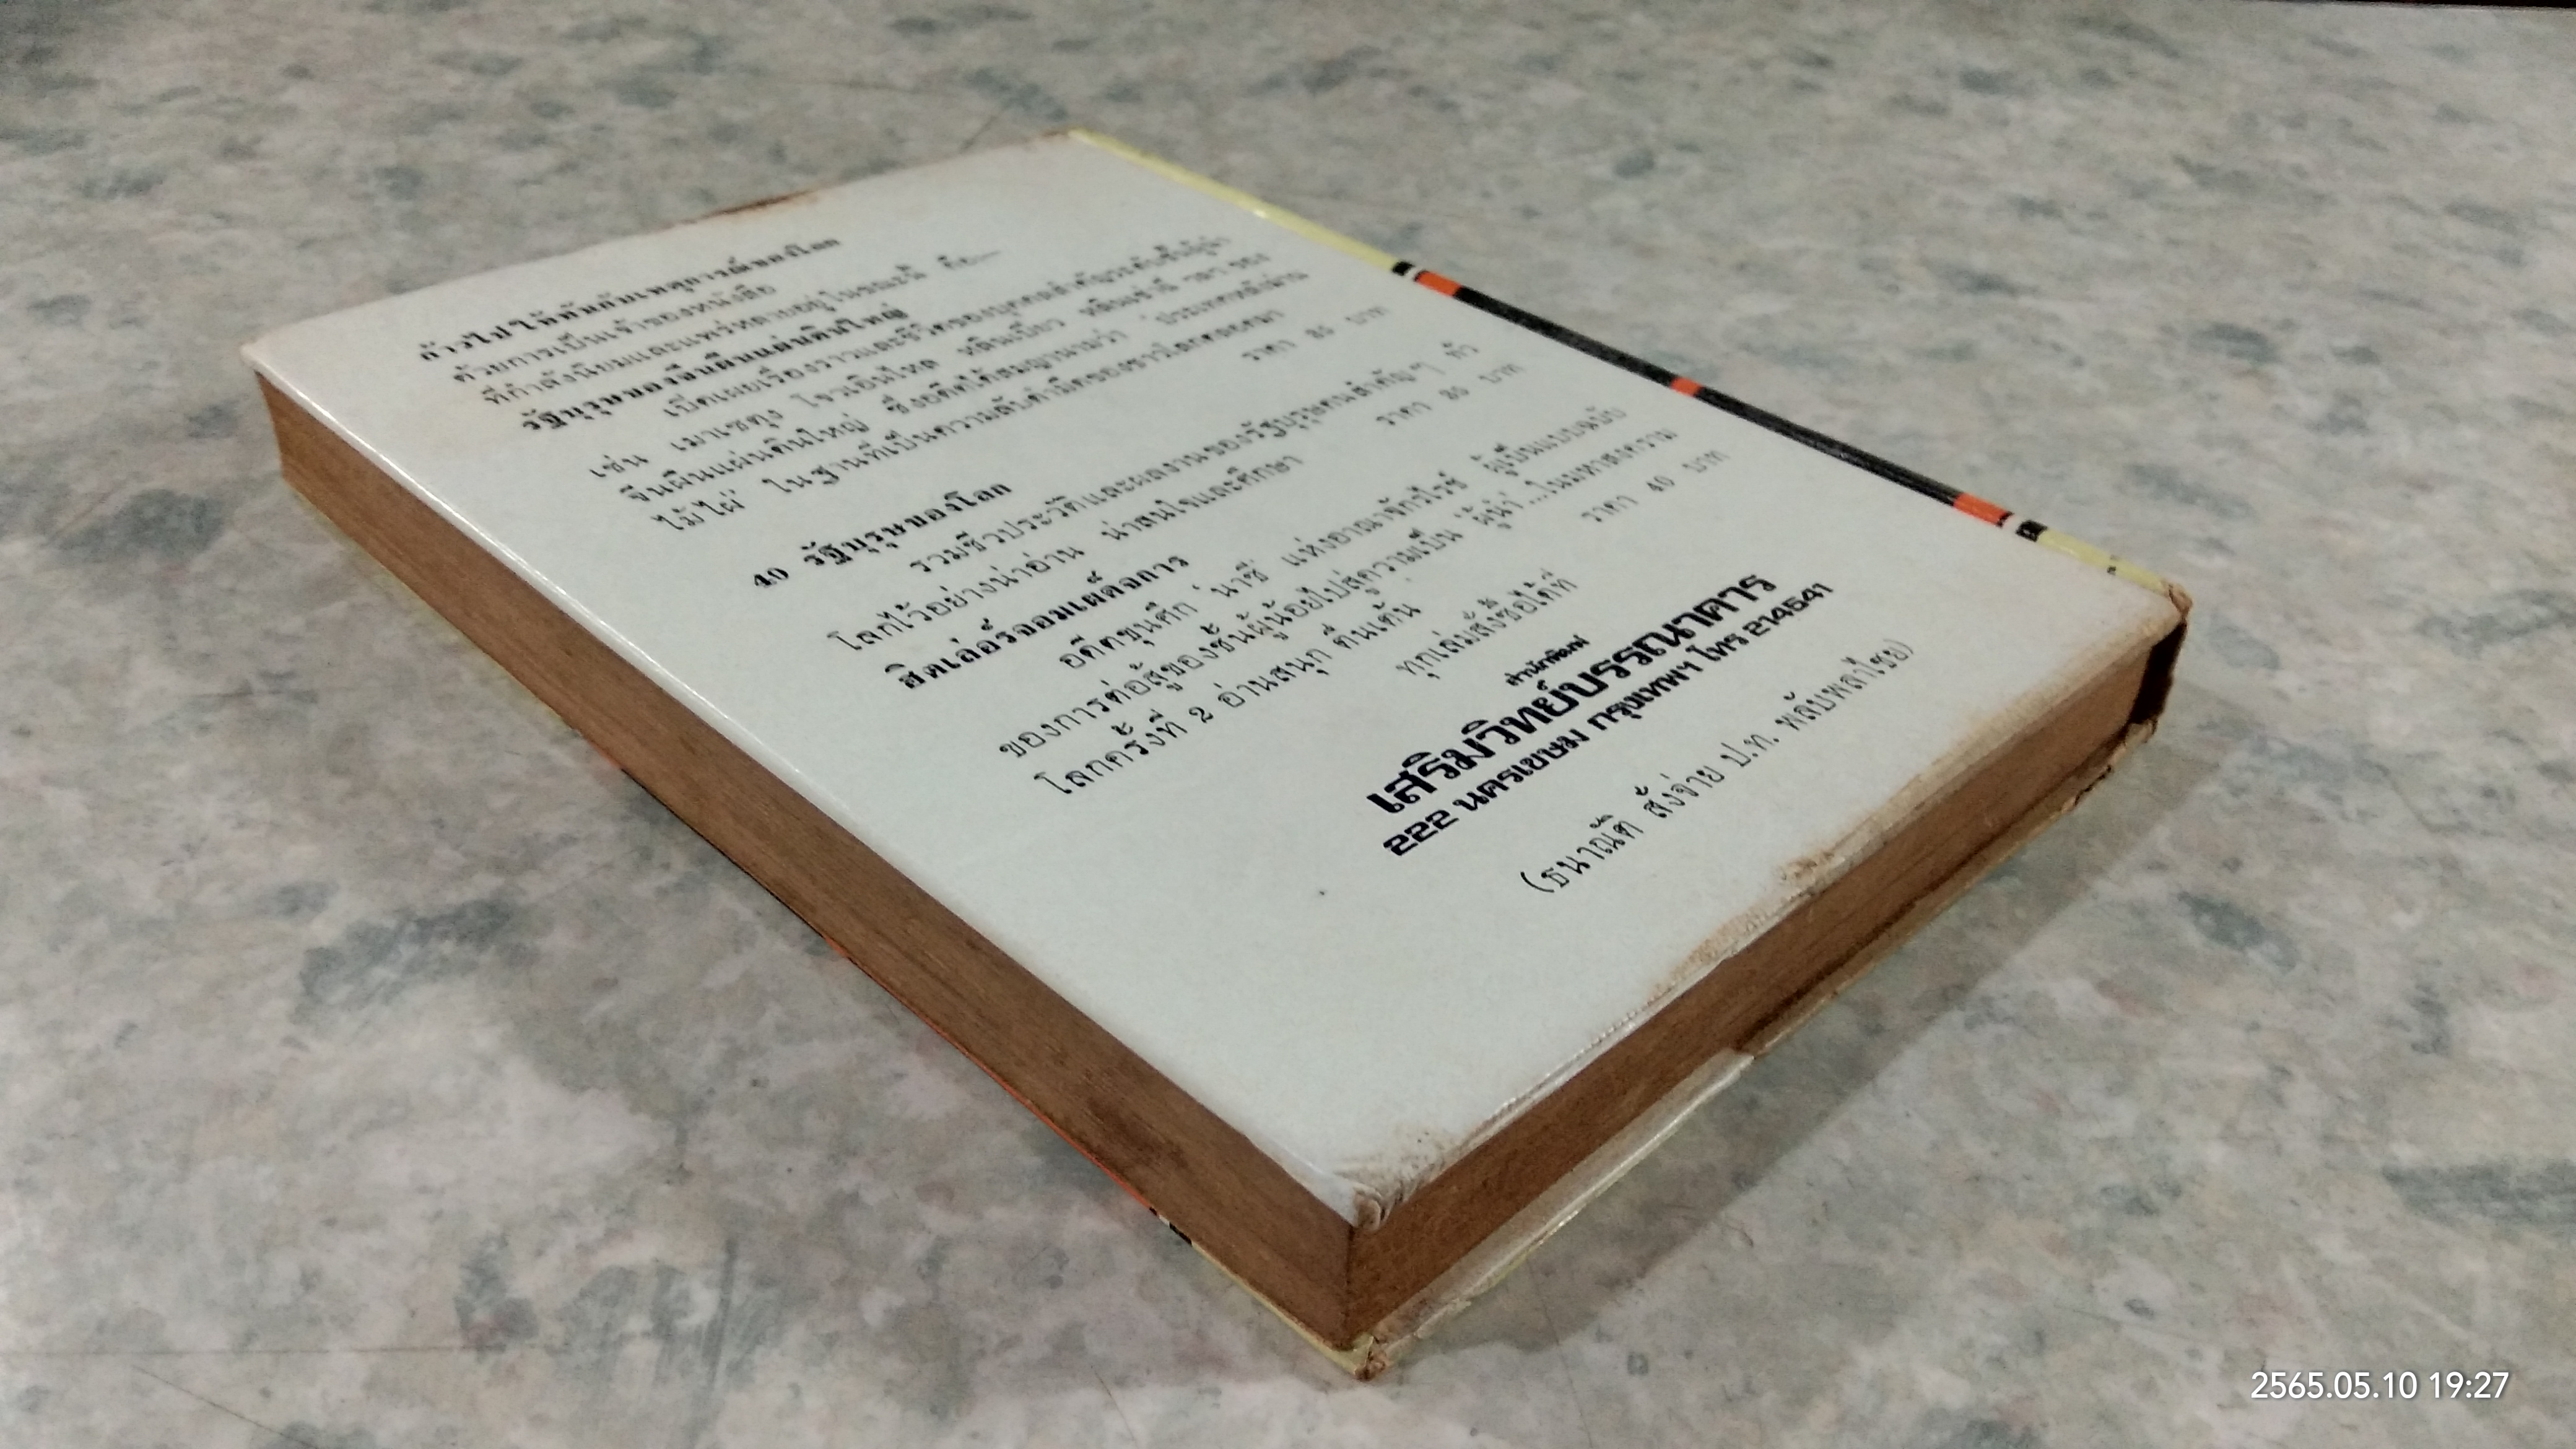 ก้าวไปให้ทันกับเหตุการณ์ของโลก
ด้วยการเป็นเจ้าของหนังสือ
ที่กำลังนิยมและแพร่หลายอยู่ในขณะนี้ คือ—
รัฐบุรุษของจีนผืนแผ่นดินใหญ่
เปิดเผยเรื่องราวและชีวิตของบุคคลสำคัญระดับชั้นผู้นำ
เช่น เมาเซตุง โจวเอินไหล หลินเปียว หลิวเซ่าฉี ฯลฯ ของ
จีนผืนแผ่นดินใหญ่ ซึ่งอดีตได้สมญานามว่า 'ประเทศหลังม่าน
ไม้ไผ่' ในฐานที่เป็นความลับดำมืดของชาวโลกตลอดมา
ราคา 30 บาท
40 รัฐบุรุษของโลก
รวมชีวประวัติและผลงานของรัฐบุรุษคนสำคัญๆ ทั่ว
โลกไว้อย่างน่าอ่าน น่าสนใจและศึกษา ราคา 30 บาท
ฮิตเล่อร์จอมเผด็จการ
อดีตขุนศึก 'นาซี' แห่งอาณาจักรไรซ์ ผู้เป็นแบบฉบับ
ของการต่อสู้ของชั้นผู้น้อยไปสู่ความเป็น 'ผู้นำ' ...ในมหาสงคราม
โลกครั้งที่ 2 อ่านสนุก ตื่นเต้น ราคา 40 บาท
ทุกเล่มสั่งซื้อได้ที่
สำนักพิมพ์
เสริมวิทย์บรรณาคาร
222 นครเขษม กรุงเทพฯ โทร 214541
(ธนาณัติ สั่งจ่าย ป.ท. พลับพลาไชย)
2565.05.10 19:27